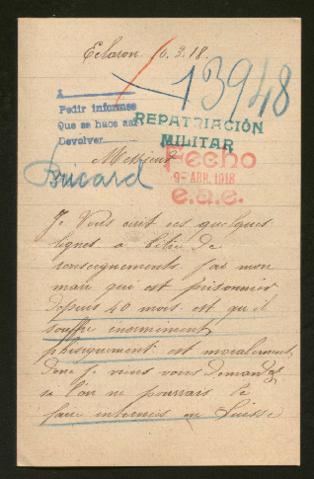 Eclaron 6.3.18.
13948
A
Pedir informes
Que se hace así
Devolver
REPATRIACIÓN
MILITAR
Monsieur
Fecho
9- ABR. 1918
e.a.e.
Bricard
Je Vous ecrit ces quelques
lignes a titre de
renseignements par mon
mari qui est prisonnier
depuis 40 mois et qu'il
souffre énormément
phisiquement est moralement
donc je viens vous demander
si l'on ne pourrais le
faire internées en Suisse